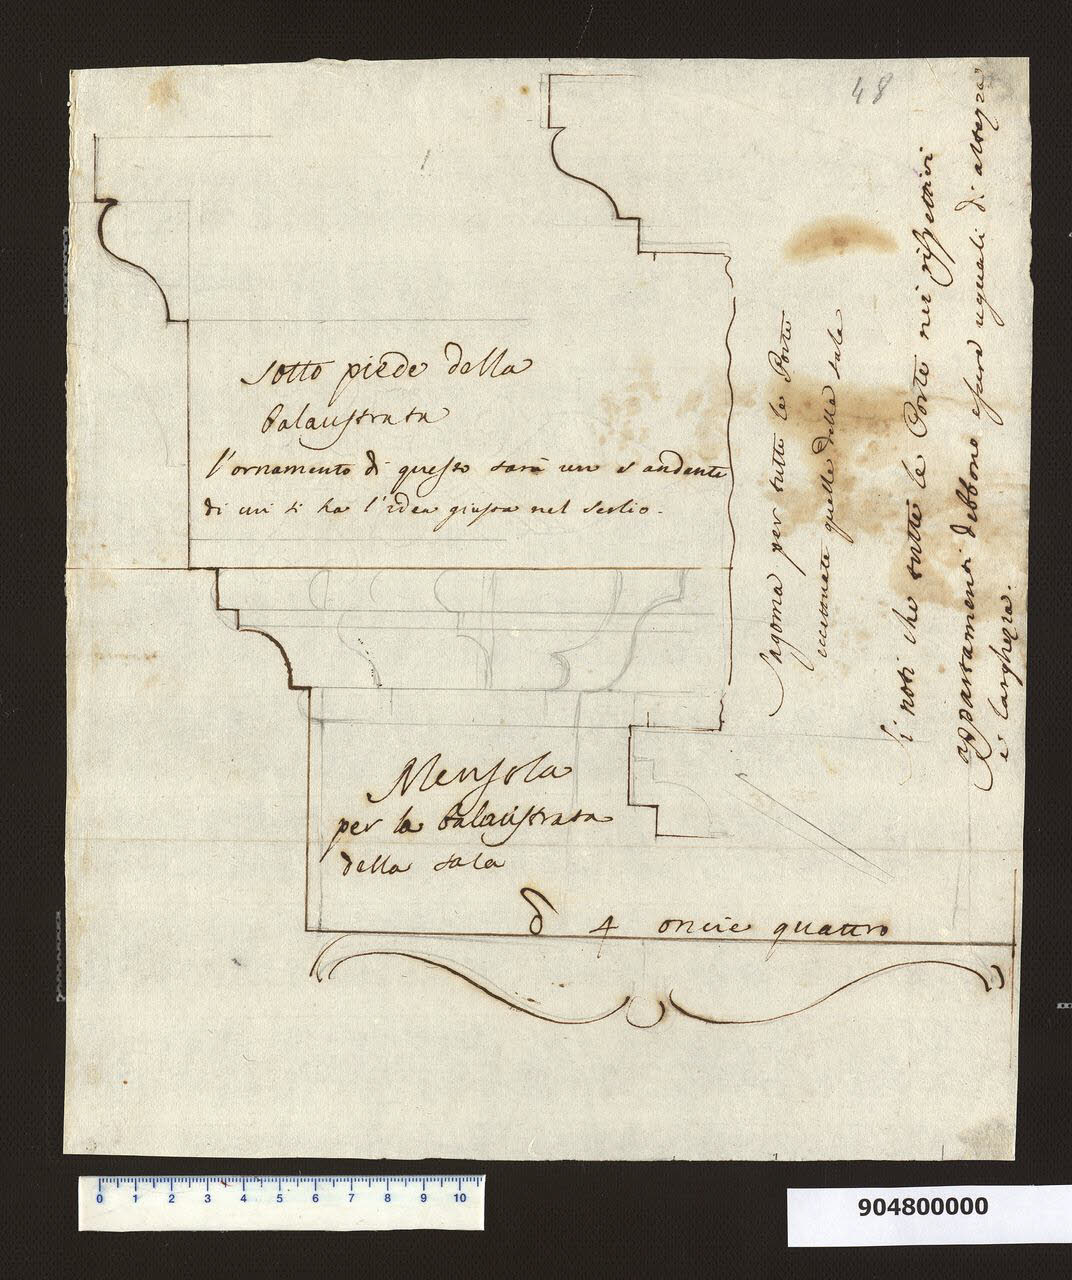 48
sotto piede della
balaustrata
l'ornamento di questo sarà un s andante
di cui si ha l'idea giusta nel Serlio.
Mensola
per la balaustrata
della sala
4 oncie quattro
Sagoma per tutte le Porte
eccettuate quelle della sala
Si noti che tutte le Porte nei rispettivi
appartamenti debbono essere uguali di altezza
e larghezza.
0 1 2 3 4 5 6 7 8 9 10
904800000